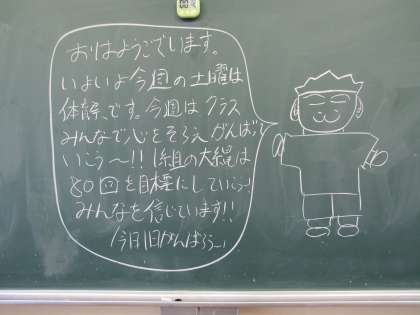 おはようございます。
いよいよ今週の土曜は
体育祭です。今週はクラス
みんなで心をそろえがんばって
いこう〜!!1組の大縄は
80回を目標にしていこう!
みんなを信じています!!
今日1日がんばろうー!